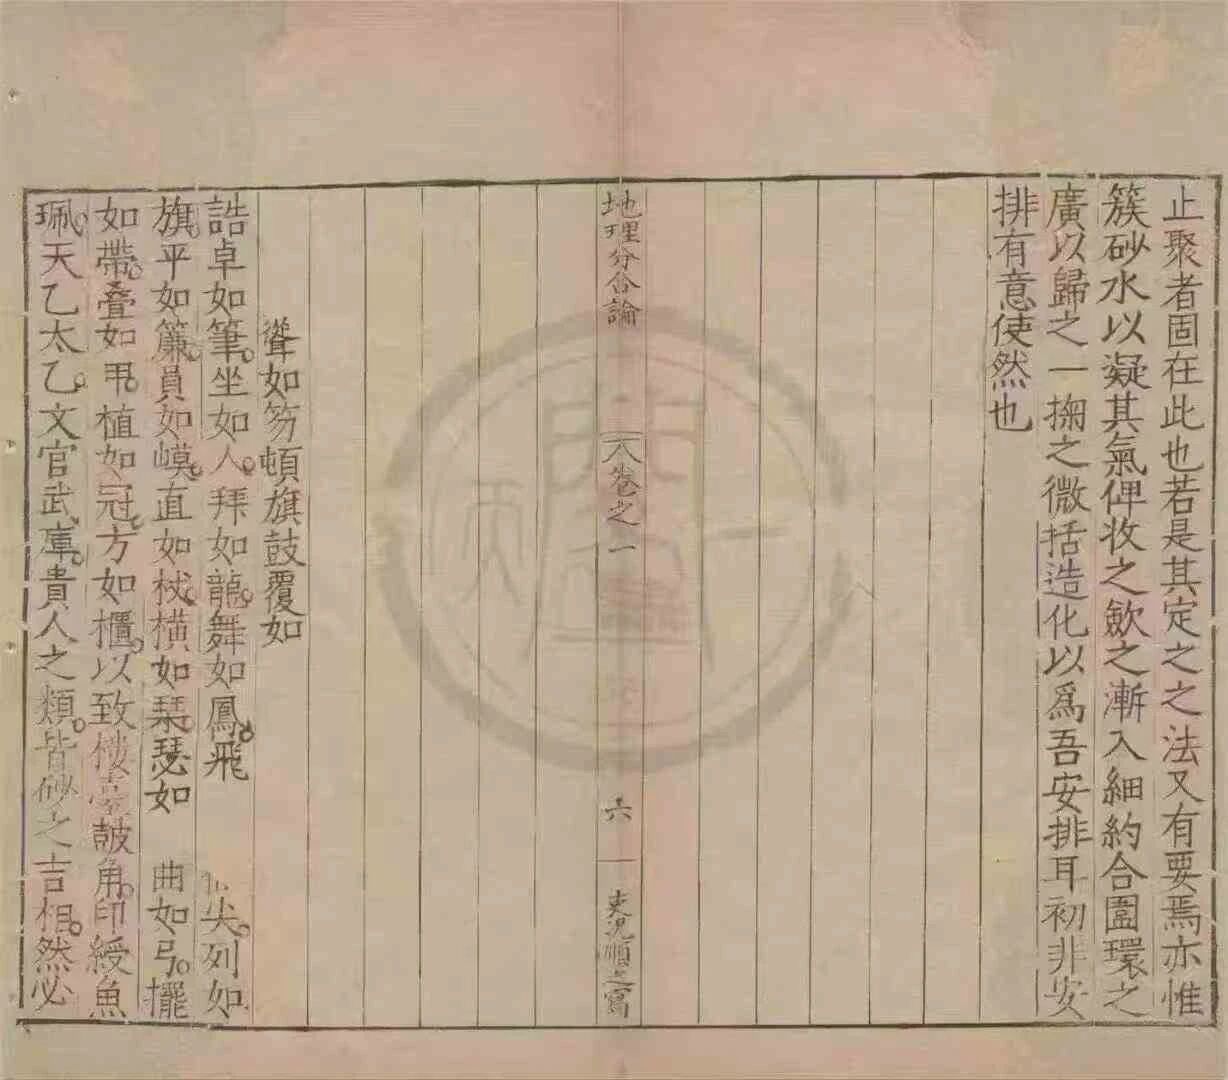 止聚者固在此也若是其定之之法又有要焉亦惟
簇砂水以凝其氣俾收之歛之漸入細約合圍環之
廣以歸之一掬之微括造化以爲吾安排耳初非安
排有意使然也
地理分合論 卷之一 六 吏況順之寫
聳如笏頓旗鼓覆如
誥卓如筆坐如人拜如龍舞如鳳飛 尖列如
旗平如簾員如㠓直如杖橫如琹瑟如 曲如弓擺
如帶叠如甲植如冠方如櫃以致樓臺鼓角印綬魚
珮天乙太乙文官武庫貴人之類皆砂之吉相然必